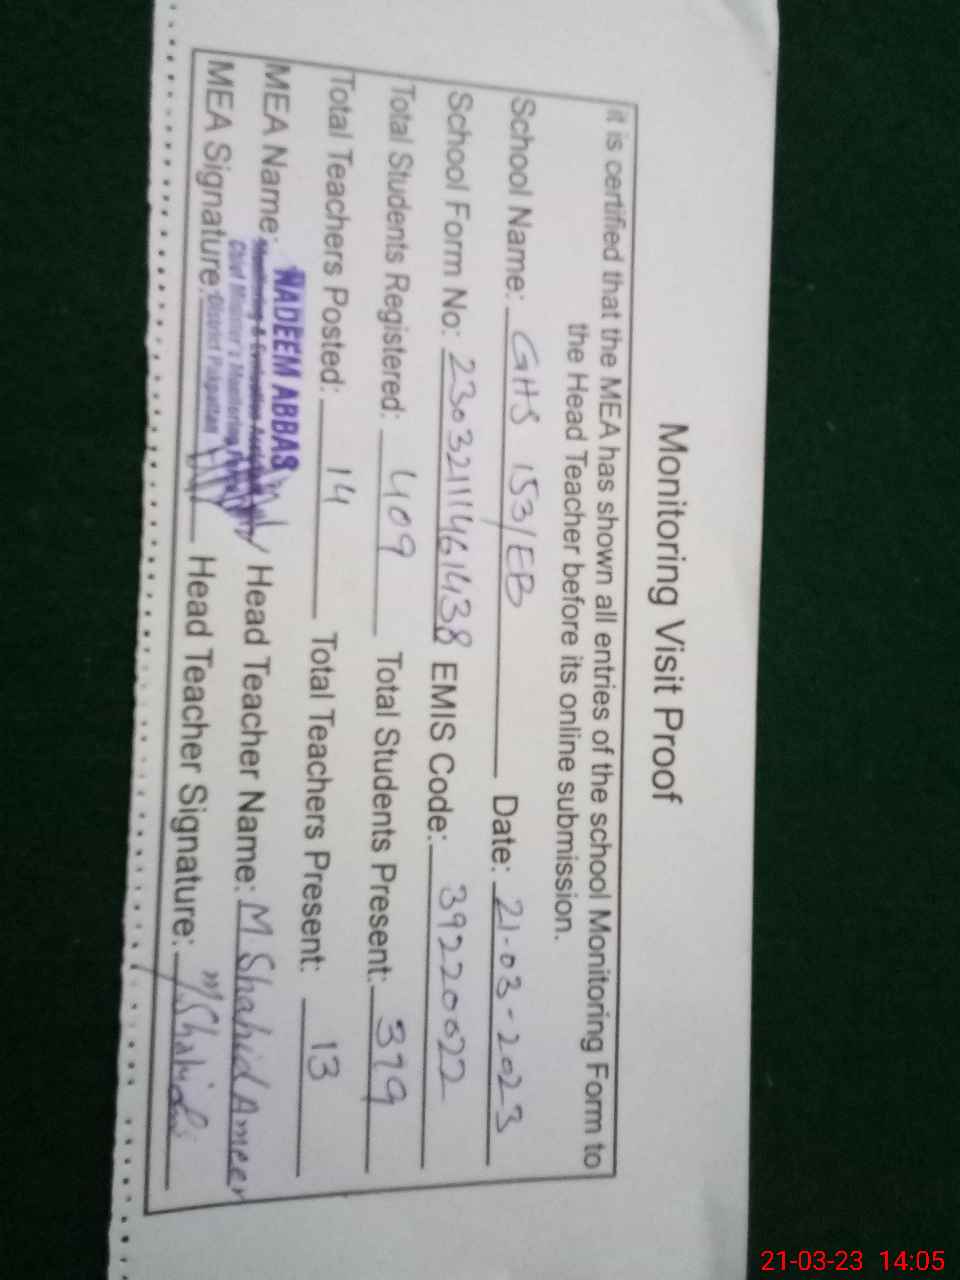 Monitoring Visit Proof
it is certified that the MEA has shown all entries of the school Monitoring Form to
the Head Teacher before its online submission.
School Name: GHS 153/EB Date: 21-03-2023
School Form No: 23032111461438 EMIS Code: 39220022
Total Students Registered: 409 Total Students Present: 379
Total Teachers Posted: 14 Total Teachers Present: 13
MEA Name: NADEEM ABBAS Head Teacher Name: M Shahid Ameer
Monitoring & Evaluation Assistant
Chief Minister's Monitoring Force
MEA Signature: District Pakpattan Head Teacher Signature: M. Shahid
21-03-23 14:05